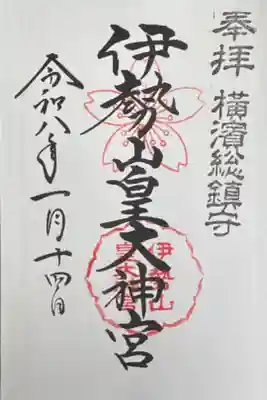 奉拝 横濱総鎮守
伊勢山皇大神宮
令和八年一月十四日
伊勢山
皇大神宮